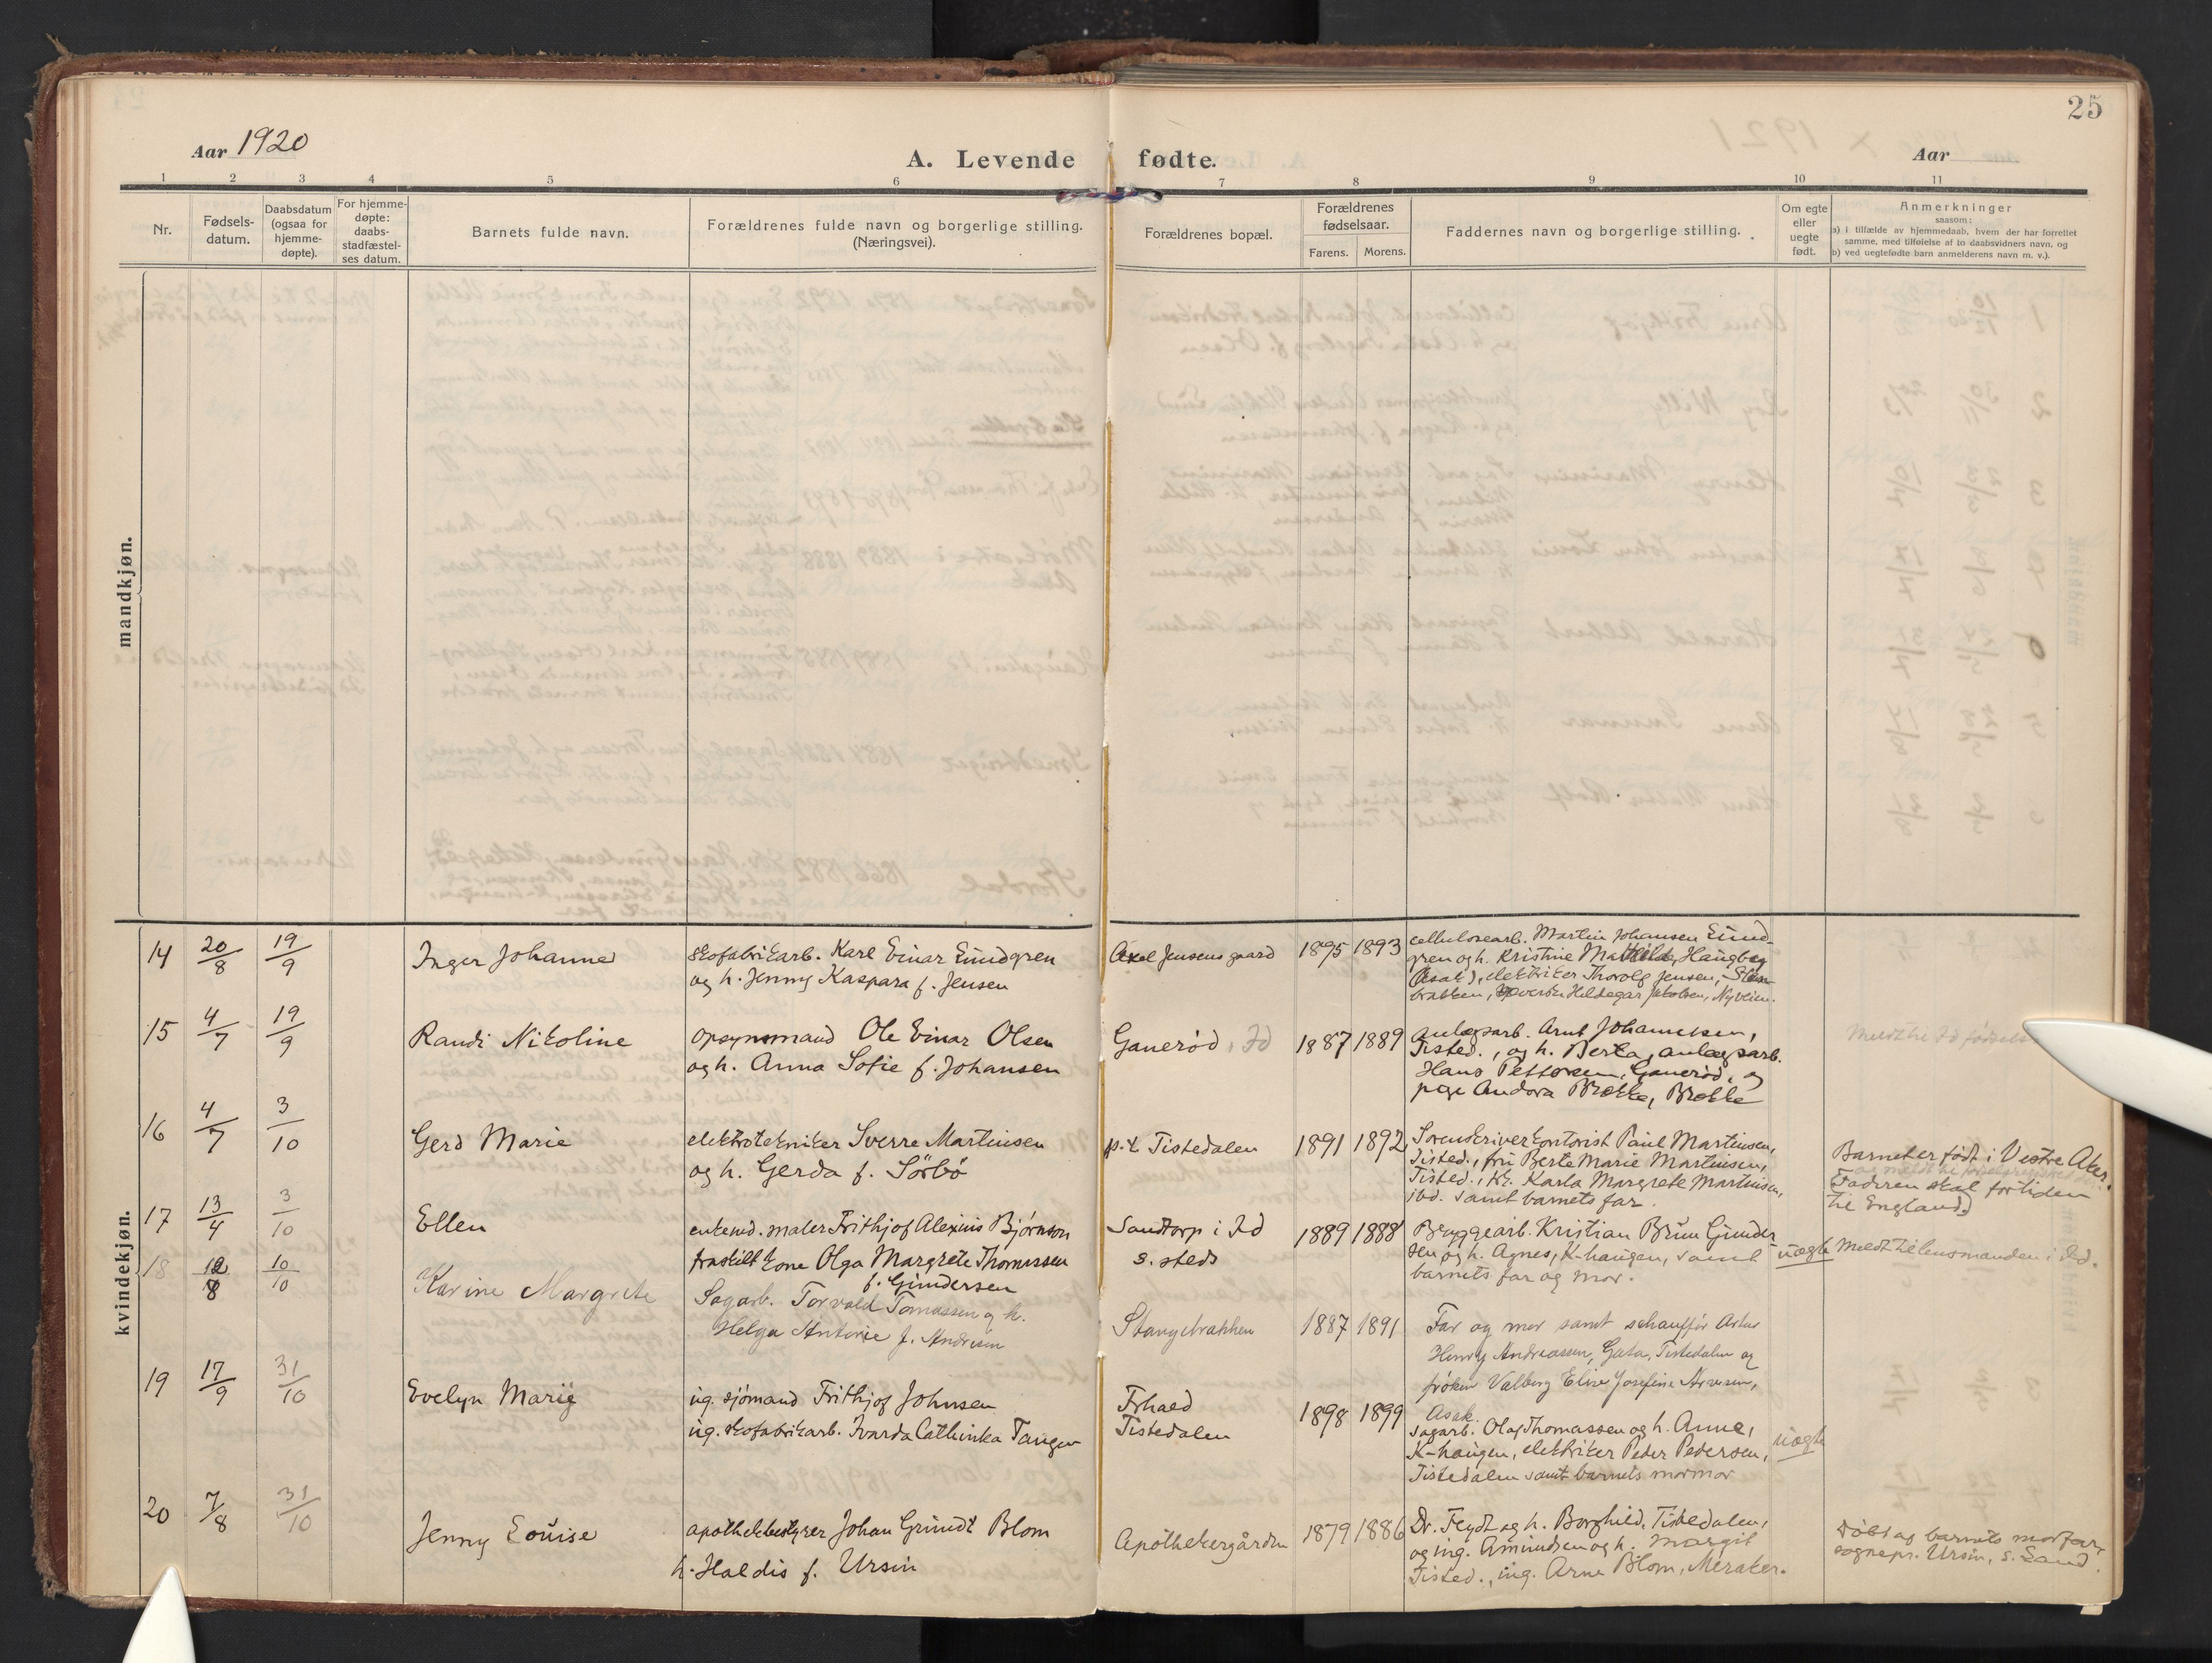 25
Aar 1920
A. Levende fødte.
Aar
1 2 3 4 5 6 7 8 9 10 11
Nr.
Fødsels-
datum.
Daabsdatum
(ogsaa for
hjemme-
døpte).
For hjemme-
døpte:
daabs-
stadfæstel-
ses datum.
Barnets fulde navn.
Forældrenes fulde navn og borgerlige stilling.
(Næringsvei).
Forældrenes bopæl.
Forældrenes
fødselsaar.
Farens. Morens.
Faddernes navn og borgerlige stilling.
Om egte
eller
uegte
født.
Anmerkninger
saasom:
a) i tilfælde av hjemmedaab, hvem der har forrettet
samme, med tilføielse af to daabsvidners navn, og
b) ved uegtefødte barn anmelderens navn m. v.).
mandkjøn.
kvindekjøn.
14 20/8 19/9
Inger Johanne
skofabrikarb. Karl Einar Lundgren
og h. Jenny Kaspara f. Jensen
Axel Jensens gaard
1895 1893
cellulosearb. Martin Johansen Lund-
gren og h. Kristine Mathilde, Haugberg
(Asak), elektriker Thorolf Jensen, Stan-
brakken, Hildegar Jakobsen, Nyveien.
15 4/7 19/9
Randi Nikoline
opsynsmand Ole Einar Olsen
og h. Anna Sofie f. Johansen
Ganerød, Id
1887 1889
anlægsarb. Arnt Johannesen,
Tisted., og h. Berta, anlægsarb.
Hans Pettersen, Ganerød, og
pige Andora Brække, Brække
Meldt til Id fødsels
16 4/7 3/10
Gerd Marie
elektrotekniker Sverre Martinsen
og h. Gerda f. Sörbö
p.t. Tistedalen
1891 1892
Sorenskriverkontorist Paul Martinsen,
Tisted., fru Berte Marie Martinsen,
Tisted., frk. Karla Margrete Martinsen,
ibd. samt barnets far.
Barnet er født i Vestre Aker.
Faderen skal for tiden
til England
17 13/4 3/10
Ellen
enkemd. maler Frithjof Alexius Bjørnson
fraskilt kone Olga Margrete Thomassen
f. Gundersen
Sandtorp i Id
s. steds
1889 1888
Byggearb. Kristian Brun Gunder
sen og h. Agnes, K-haugen, samt
barnets far og mor.
uegte
Meldt til lensmanden i Id.
18 12/8 10/10
Karine Margrete
Sagarb. Torvald Tomassen og h.
Helga Antonie f. Andresen
Stangebrakken
1887 1891
Far og mor samt schauffør Artur
Henry Andreassen, Gata, Tistedalen og
frøken Valborg Elise Josefine Arvesen,
Asak.
19 17/9 31/10
Evelyn Marie
ug. sjömand Frithjof Johnsen
ug. skofabrikarb. Ivarda Cathinka Tangen
Frhald
Tistedalen
1898 1899
Sagarb. Olaf Thomassen og h. Anne,
K-haugen, elektriker Peder Pedersen,
Tistedalen samt barnets mormor
uegte
20 7/8 31/10
Jenny Louise
apothekbestyrer Johan Grundt Blom
h. Haldis f. Ursin
Apothekergården
1879 1886
Dr. Feydt og h. Borghild, Tistedalen,
og ing. Amundsen og h. Margit
Tisted., ing. Arne Blom, Meraker.
Døbt af barnets morfar,
sognepr. Ursin, s. Land.